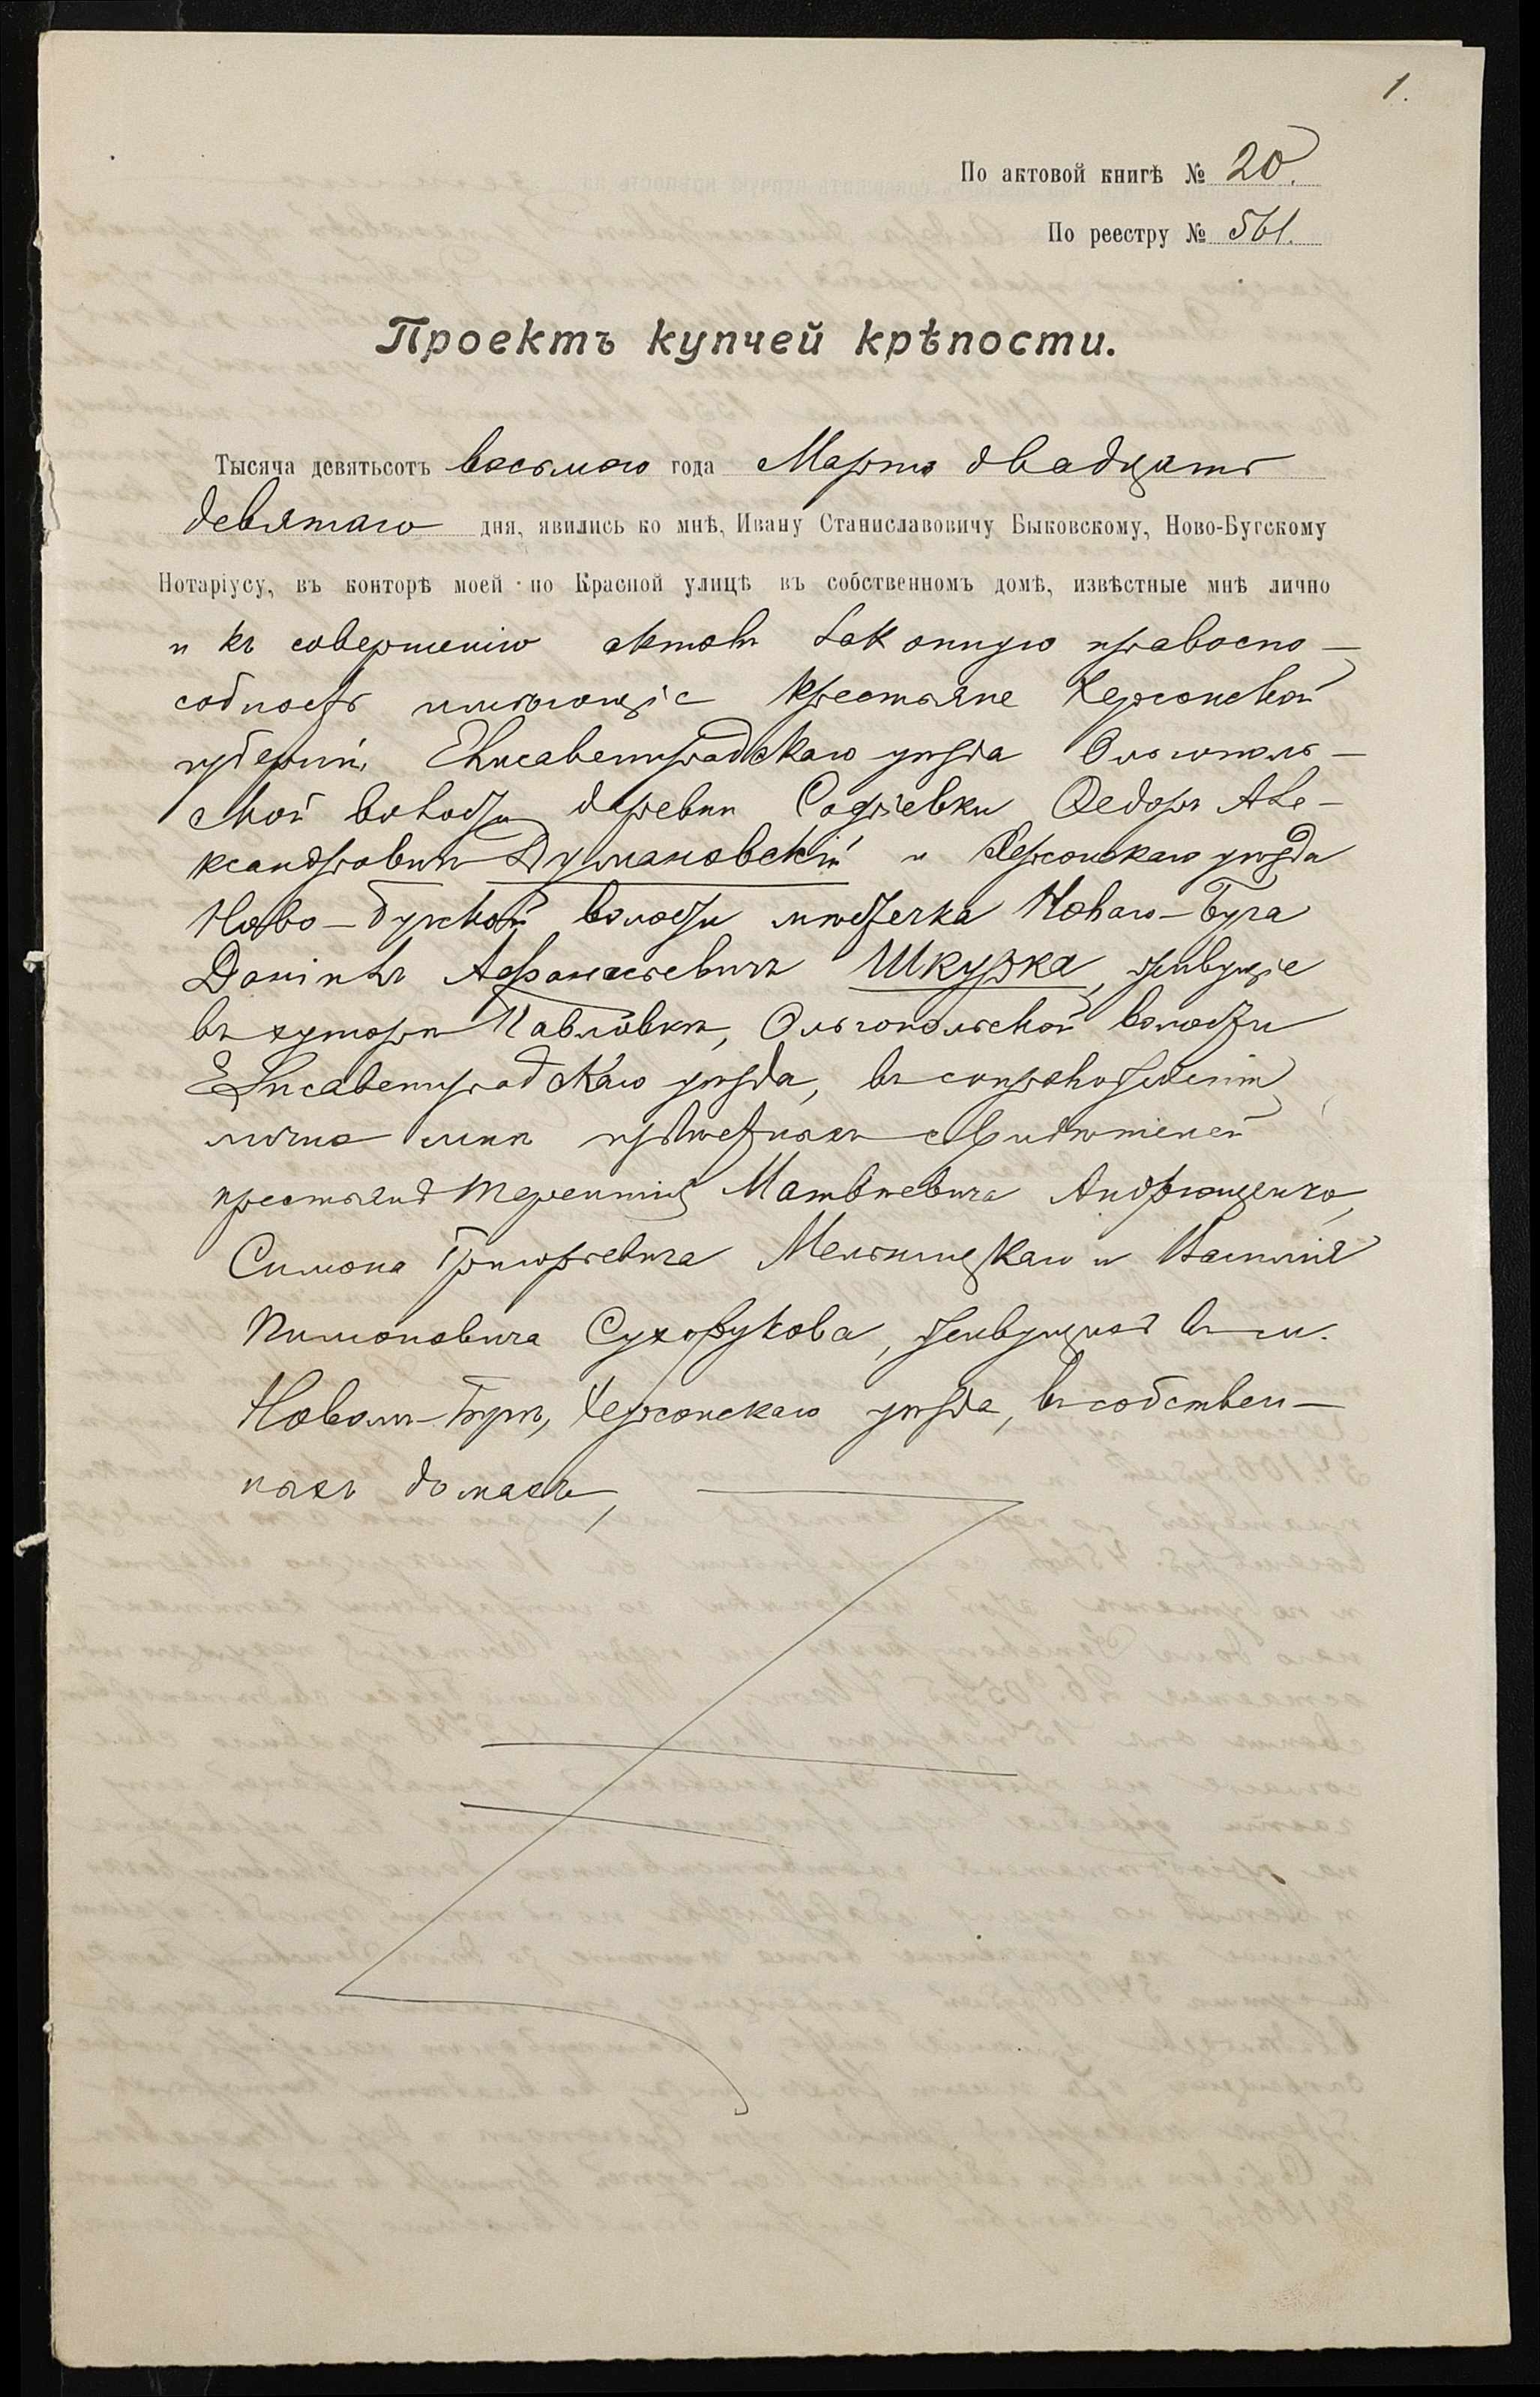 1.
По актовой книгѣ № 20.
По реестру № 561.
Проектъ купчей крѣпости.
Тысяча девятьсотъ восьмого года Марта двадцать
девятаго дня, явились ко мнѣ, Ивану Станиславовичу Быковскому, Ново-Бугскому
Нотаріусу, въ конторѣ моей по Красной улицѣ въ собственномъ домѣ, извѣстные мнѣ лично
и къ совершенію актовъ законную правоспо-
собность имѣющіе крестьяне Херсонской
губерніи, Елисаветградскаго уѣзда Ольгополь-
ской волости деревни Софіевки Ѳедоръ Але-
ксандровичъ Думановскій и Херсонскаго уѣзда
Ново-Бугской волости мѣстечка Новаго-Буга
Даніилъ Афанасьевичъ Шкурка, живущіе
въ хуторѣ Павловкѣ, Ольгопольской волости
Елисаветградскаго уѣзда, въ сопровожденіи
лично мнѣ извѣстныхъ свидѣтелей
крестьянъ Терентія Матвѣевича Андрющенко,
Симона Григорьевича Мельницкаго и Василія
Пимоновича Сухорукова, живущихъ въ м.
Новомъ-Бугѣ, Херсонскаго уѣзда, въ собствен-
ныхъ домахъ,